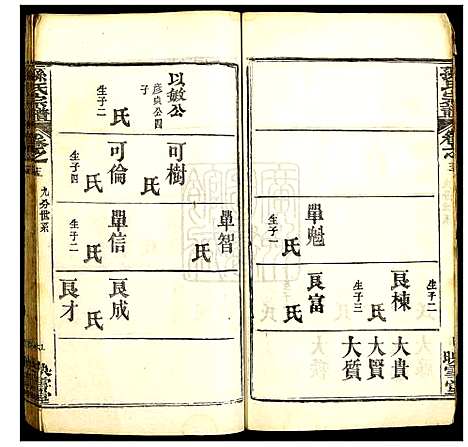 孫氏宗譜
單魁
氏
生子一
良棟
氏
生子二
良富
氏
生子三
大貴
大賢
大質
映雪堂
以敏公
彥貞公四子
氏
生子二
可樹
氏
可倫
氏
生子四
單智
氏
單信
氏
生子二
良成
氏
良才
孫氏宗譜
九分世系
映雪堂